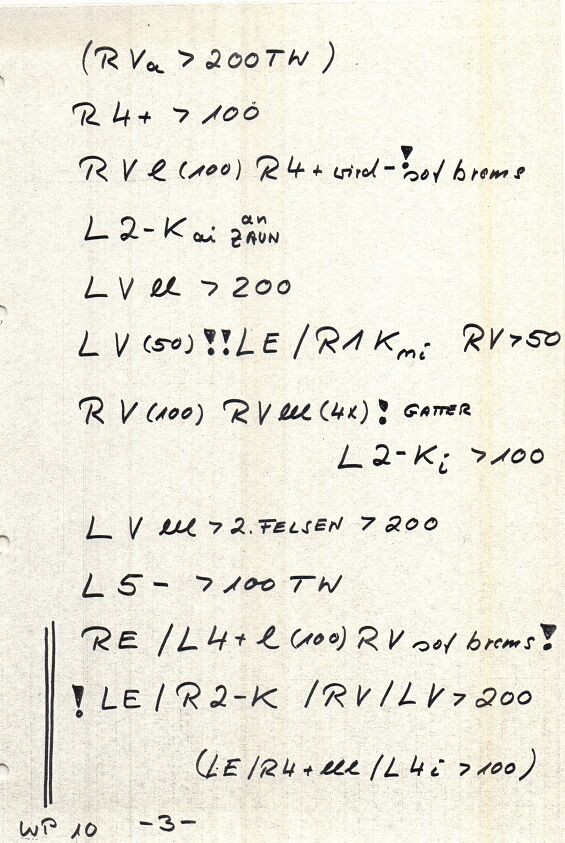 (RVa > 200TW)
R4+ > 100
RVl (100) R4+ wird -! sof brems
L2-Kai an ZAUN
LV lll > 200
LV (50) !! LE / R1 Kmi RV > 50
RV (100) RV lll (4x) ! GATTER
L2-Ki > 100
LV lll > 2. FELSEN > 200
L5- > 100 TW
RE / L4+ l (100) RV sof brems!
! LE / R2-K / RV / LV > 200
(LE/R4+ lll / L4i > 100)
WP 10 -3-